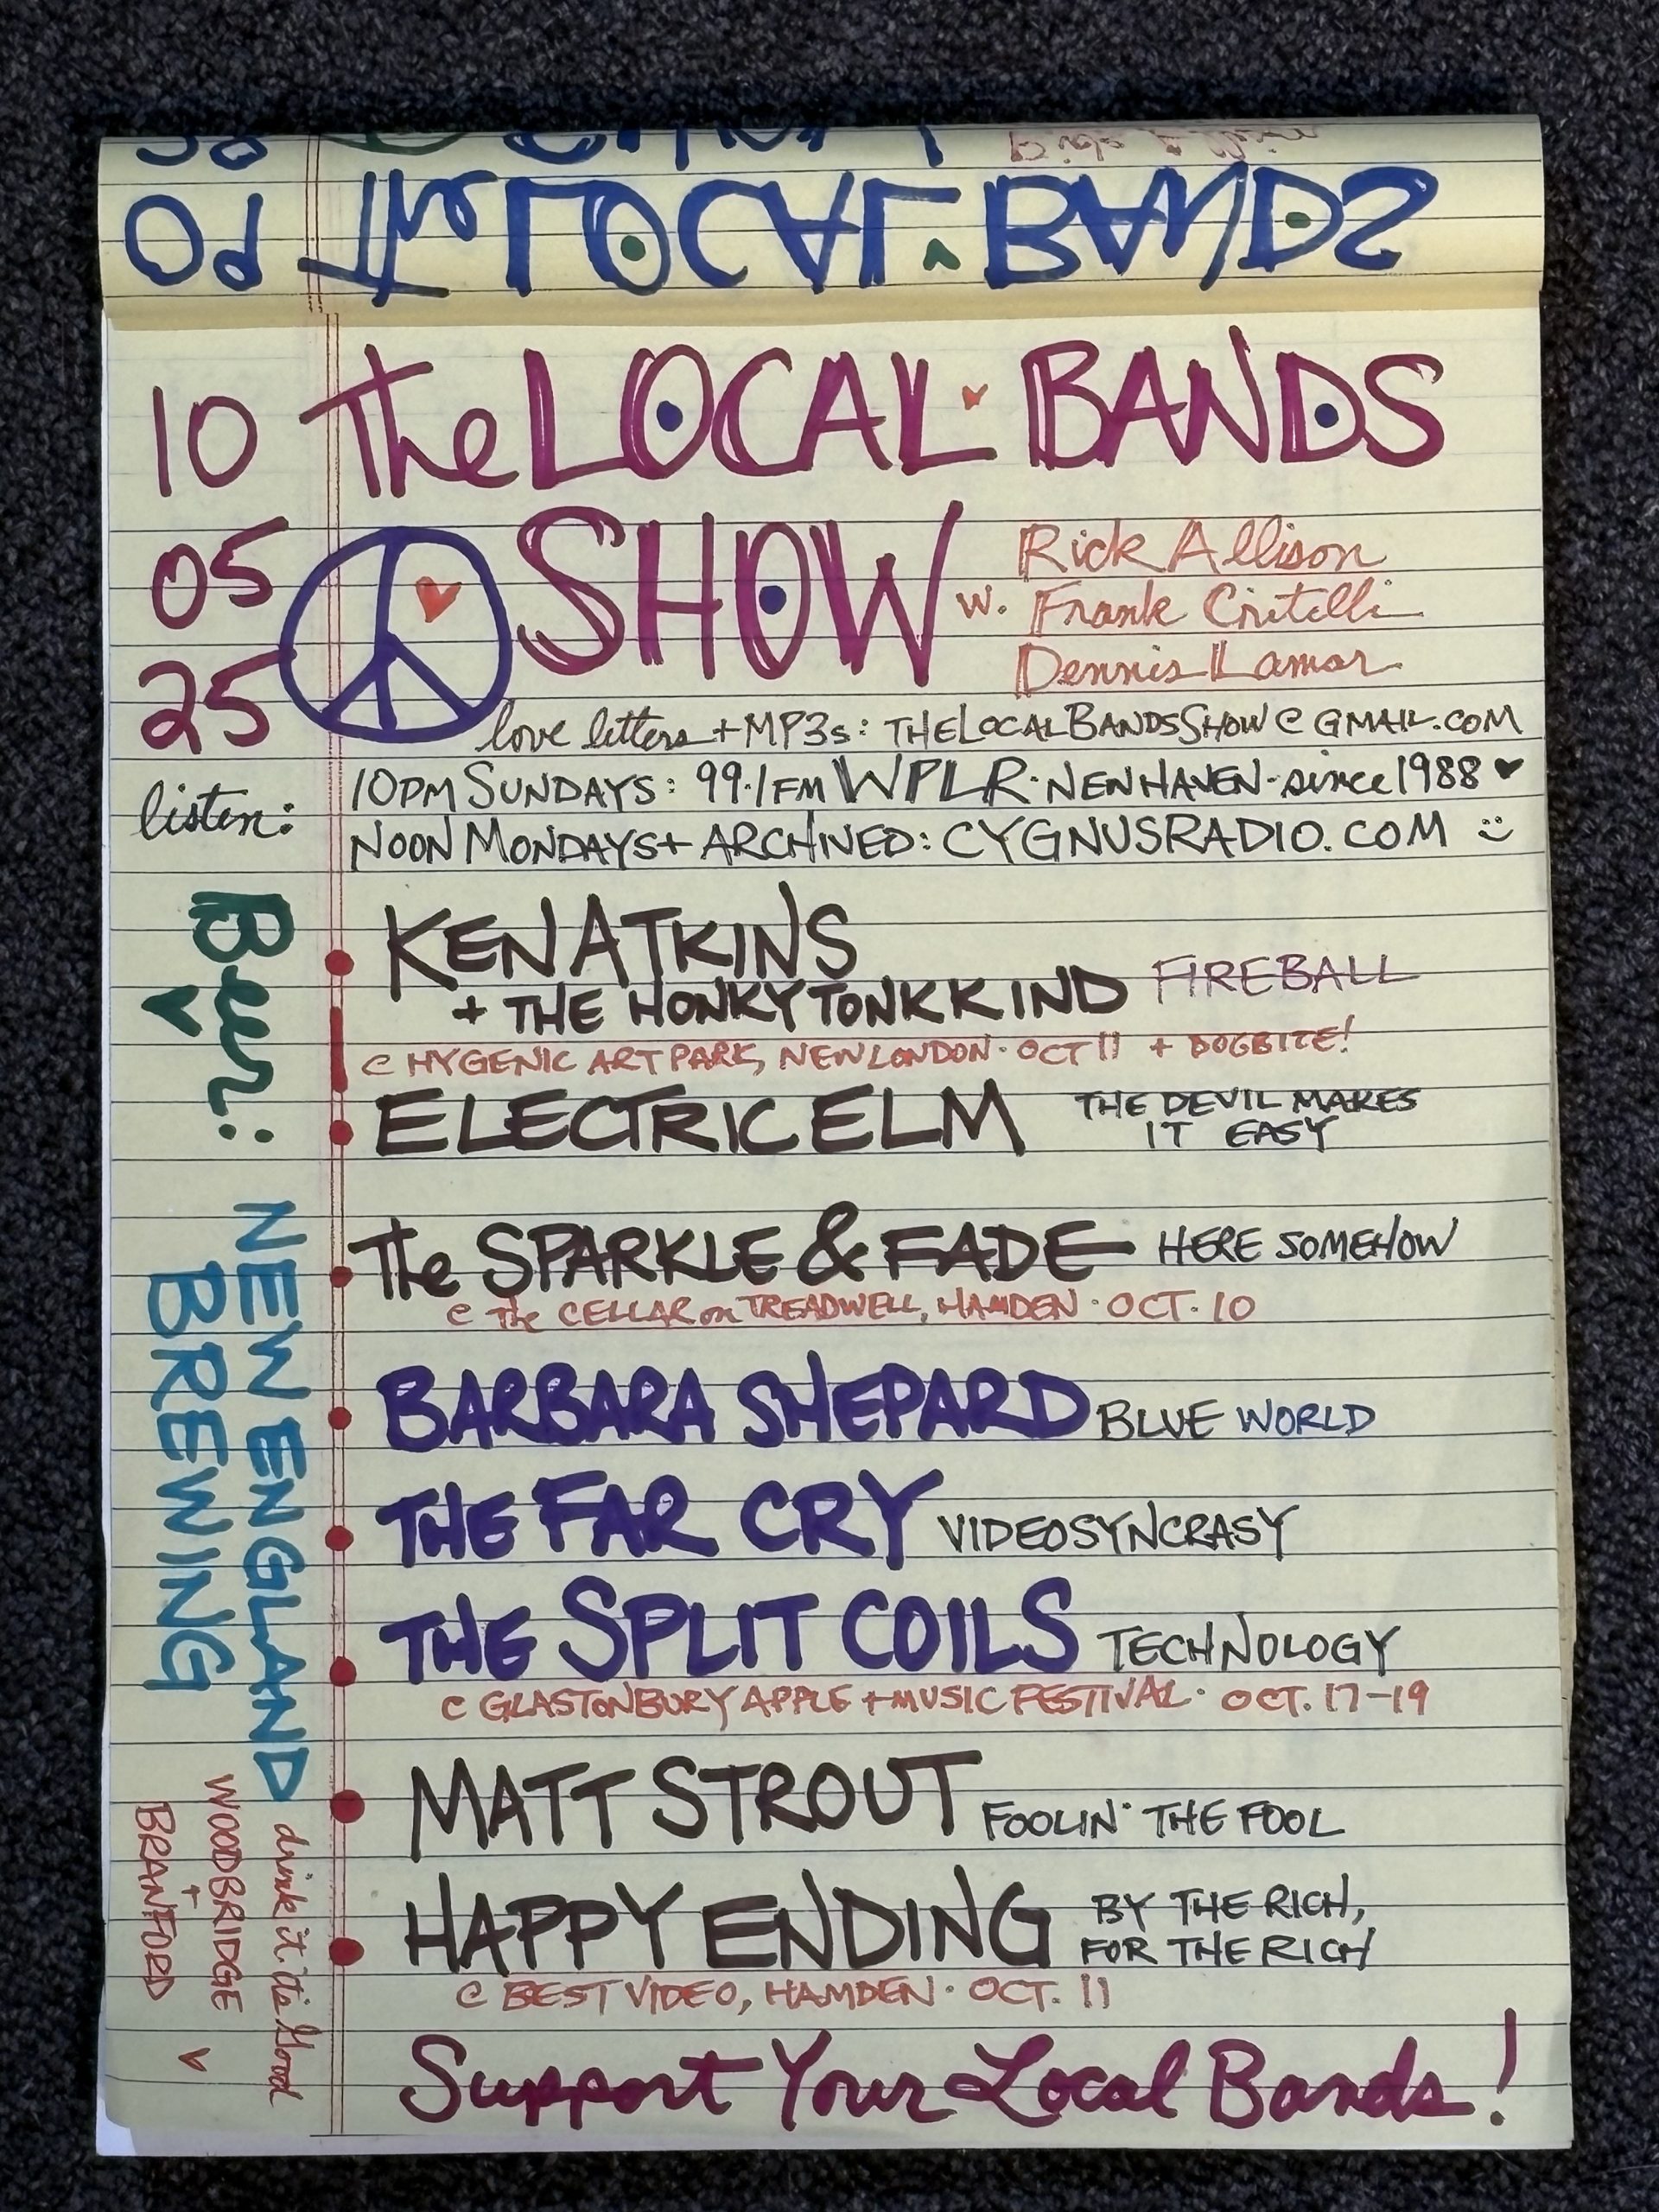 The LOCAL BANDS
10 The LOCAL BANDS
05 SHOW w. Rick Allison
Frank Critelli
Dennis Lamar
25
love letters + MP3s: THELOCALBANDSSHOW@GMAIL.COM
listen: 10PM SUNDAYS: 99.1FM WPLR · NEW HAVEN · since 1988
NOON MONDAYS + ARCHIVED: CYGNUSRADIO.COM
KEN ATKINS
+ THE HONKY TONK KIND FIREBALL
@ HYGENIC ART PARK, NEW LONDON · OCT 11 + DOGBITE!
ELECTRIC ELM THE DEVIL MAKES
IT EASY
The SPARKLE & FADE HERE SOMEHOW
@ The CELLAR on TREADWELL, HAMDEN · OCT. 10
BARBARA SHEPARD BLUE WORLD
THE FAR CRY VIDEOSYNCRASY
THE SPLIT COILS TECHNOLOGY
@ GLASTONBURY APPLE + MUSIC FESTIVAL · OCT. 17-19
MATT STROUT FOOLIN' THE FOOL
HAPPY ENDING BY THE RICH,
FOR THE RICH
@ BEST VIDEO, HAMDEN · OCT. 11
Support Your Local Bands!
Beer:
NEW ENGLAND
BREWING
drink it. it's Good
WOODBRIDGE
+
BRANFORD